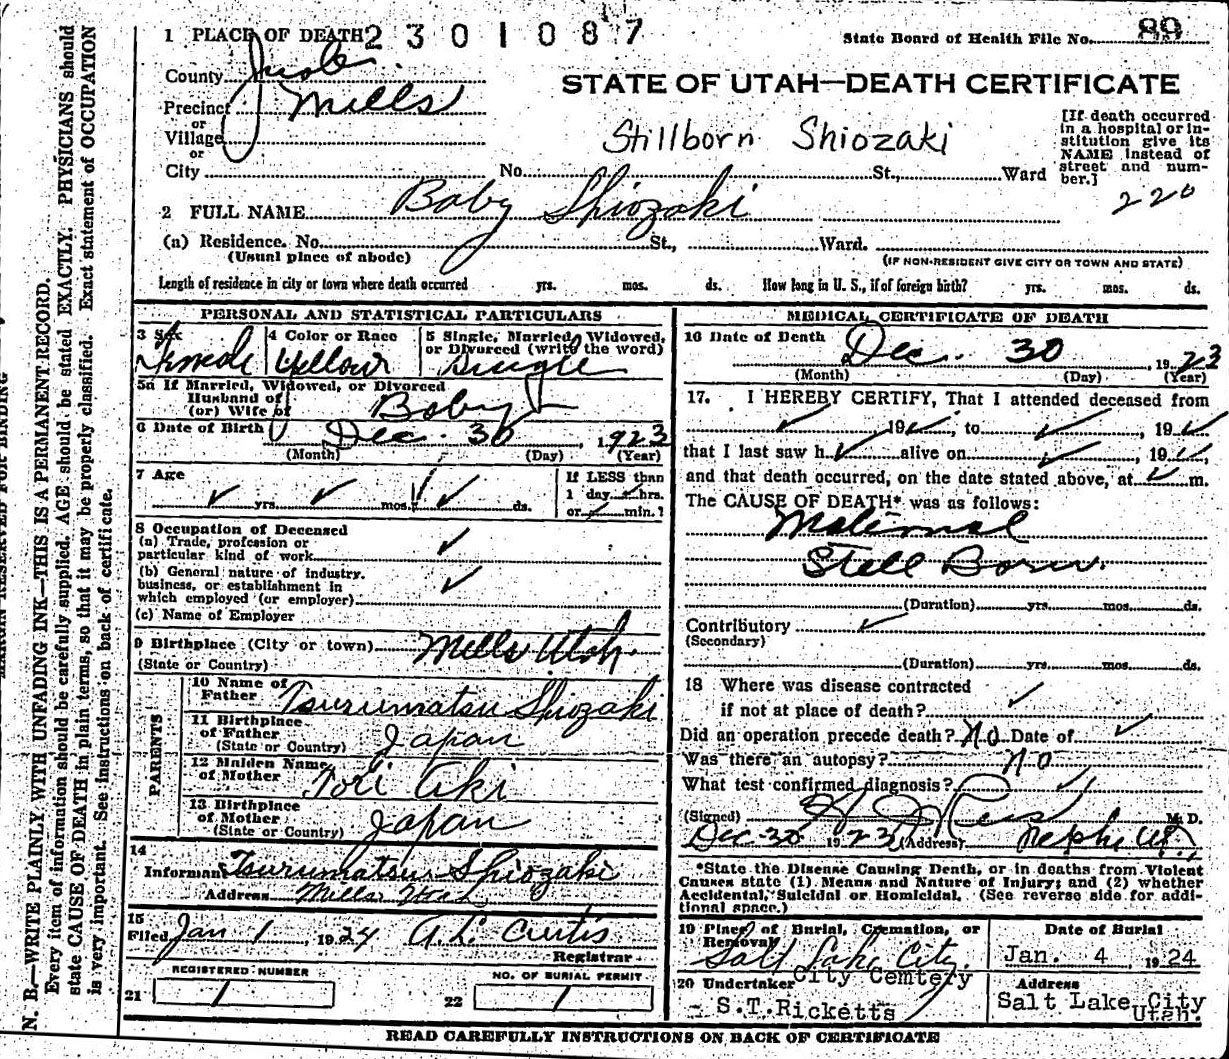 1 PLACE OF DEATH 2301087
State Board of Health File No. 89
County Juab
STATE OF UTAH—DEATH CERTIFICATE
Precinct Mills
or
Village
or
City No. St., Ward
Stillborn Shiozaki
[If death occurred
in a hospital or in-
stitution give its
NAME instead of
street and num-
ber.]
220
2 FULL NAME Baby Shiozaki
(a) Residence. No. St., Ward.
(Usual place of abode) (IF NON-RESIDENT GIVE CITY OR TOWN AND STATE)
Length of residence in city or town where death occurred yrs. mos. ds. How long in U. S., if of foreign birth? yrs. mos. ds.
PERSONAL AND STATISTICAL PARTICULARS
3 Sex 4 Color or Race 5 Single, Married, Widowed,
or Divorced (write the word)
Female Yellow Single
5a If Married, Widowed, or Divorced
Husband of
(or) Wife of Baby
6 Date of Birth Dec. 30, 1923
(Month) (Day) (Year)
7 Age If LESS than
yrs. mos. ds. 1 day hrs.
or min.?
8 Occupation of Deceased
(a) Trade, profession or
particular kind of work
(b) General nature of industry,
business, or establishment in
which employed (or employer)
(c) Name of Employer
9 Birthplace (City or town) Mills Utah.
(State or Country)
PARENTS
10 Name of
Father Tsurumatsu Shiozaki
11 Birthplace
of Father Japan
(State or Country)
12 Maiden Name
of Mother Tori Aki
13 Birthplace
of Mother Japan
(State or Country)
14
Informant Tsurumatsu Shiozaki
Address Mills Utah
15
Filed Jan 1, 1924 A. L. Curtis
Registrar
REGISTERED NUMBER NO. OF BURIAL PERMIT
21 1 22 1
MEDICAL CERTIFICATE OF DEATH
16 Date of Death Dec. 30, 1923
(Month) (Day) (Year)
17. I HEREBY CERTIFY, That I attended deceased from
, 19 , to , 19
that I last saw h alive on , 19 ,
and that death occurred, on the date stated above, at m.
The CAUSE OF DEATH* was as follows:
Maternal
Still Born.
(Duration) yrs. mos. ds.
Contributory
(Secondary)
(Duration) yrs. mos. ds.
18 Where was disease contracted
if not at place of death?
Did an operation precede death? No Date of
Was there an autopsy? no
What test confirmed diagnosis?
(Signed) M. D.
Dec 30 1923 (Address) Nephi Ut.
*State the Disease Causing Death, or in deaths from Violent
Causes state (1) Means and Nature of Injury; and (2) whether
Accidental, Suicidal or Homicidal. (See reverse side for addi-
tional space.)
19 Place of Burial, Cremation, or
Removal Date of Burial
Salt Lake City. Jan. 4, 1924
City Cemtery
20 Undertaker Address
S.T.Ricketts Salt Lake City
Utah.
READ CAREFULLY INSTRUCTIONS ON BACK OF CERTIFICATE
MARGIN RESERVED FOR BINDING
N. B.—WRITE PLAINLY, WITH UNFADING INK—THIS IS A PERMANENT RECORD.
Every item of information should be carefully supplied. AGE should be stated EXACTLY. PHYSICIANS should
state CAUSE OF DEATH in plain terms, so that it may be properly classified. Exact statement of OCCUPATION
is very important. See instructions on back of certificate.